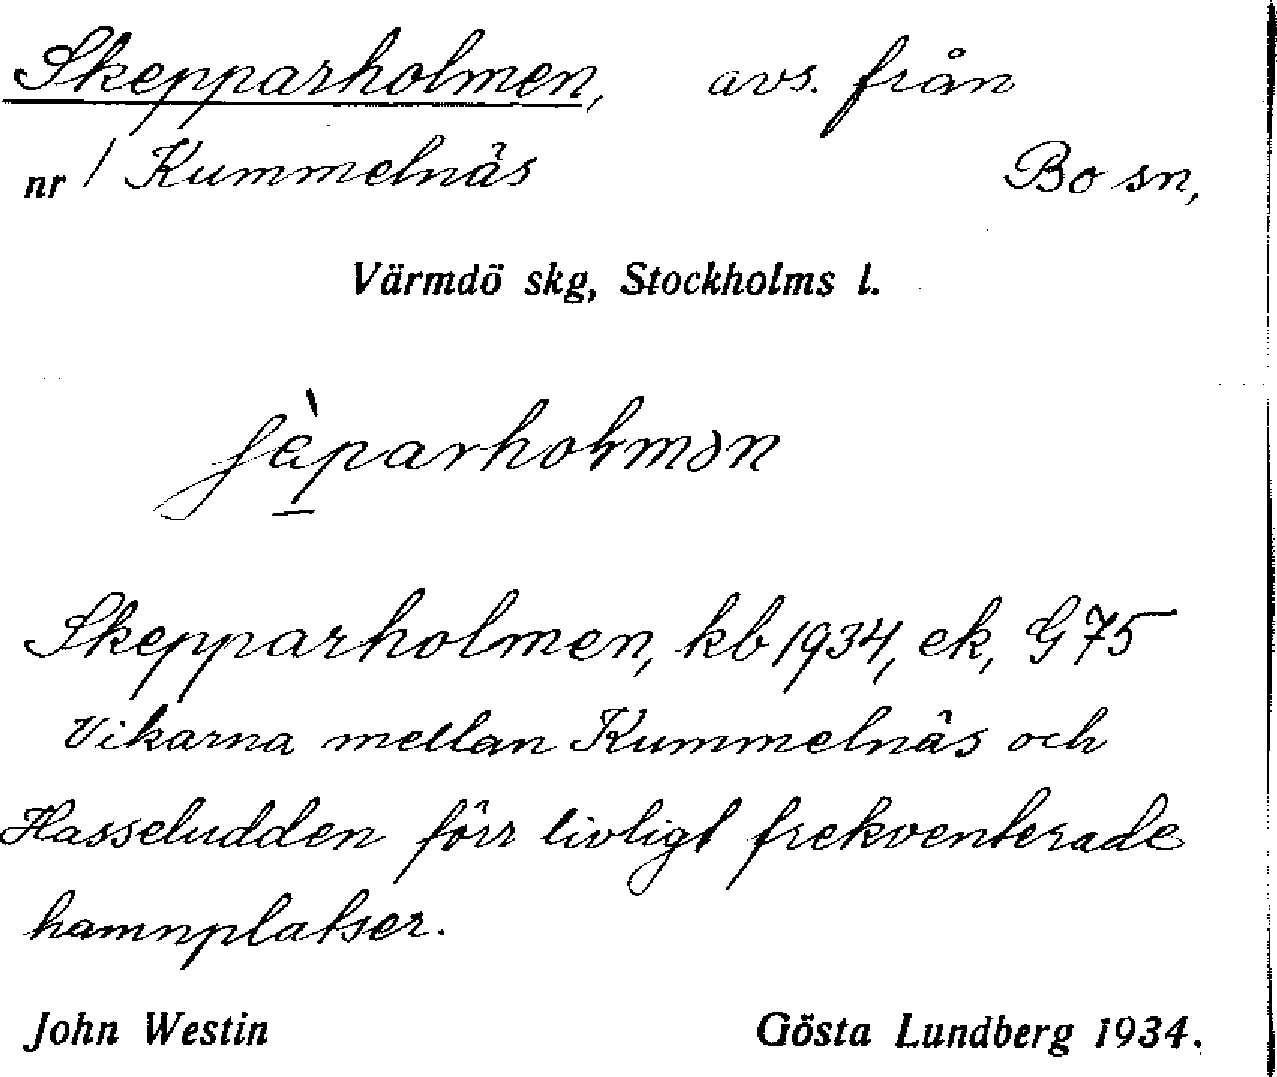 Skepparholmen, avs. från
nr 1 Kummelnäs Bo sn,
Värmdö skg, Stockholms l.
Skepparholmen, kb 1934, ek, G 75
Vikarna mellan Kummelnäs och
Hasseludden förr livligt frekventerade
hamnplatser.
John Westin Gösta Lundberg 1934.